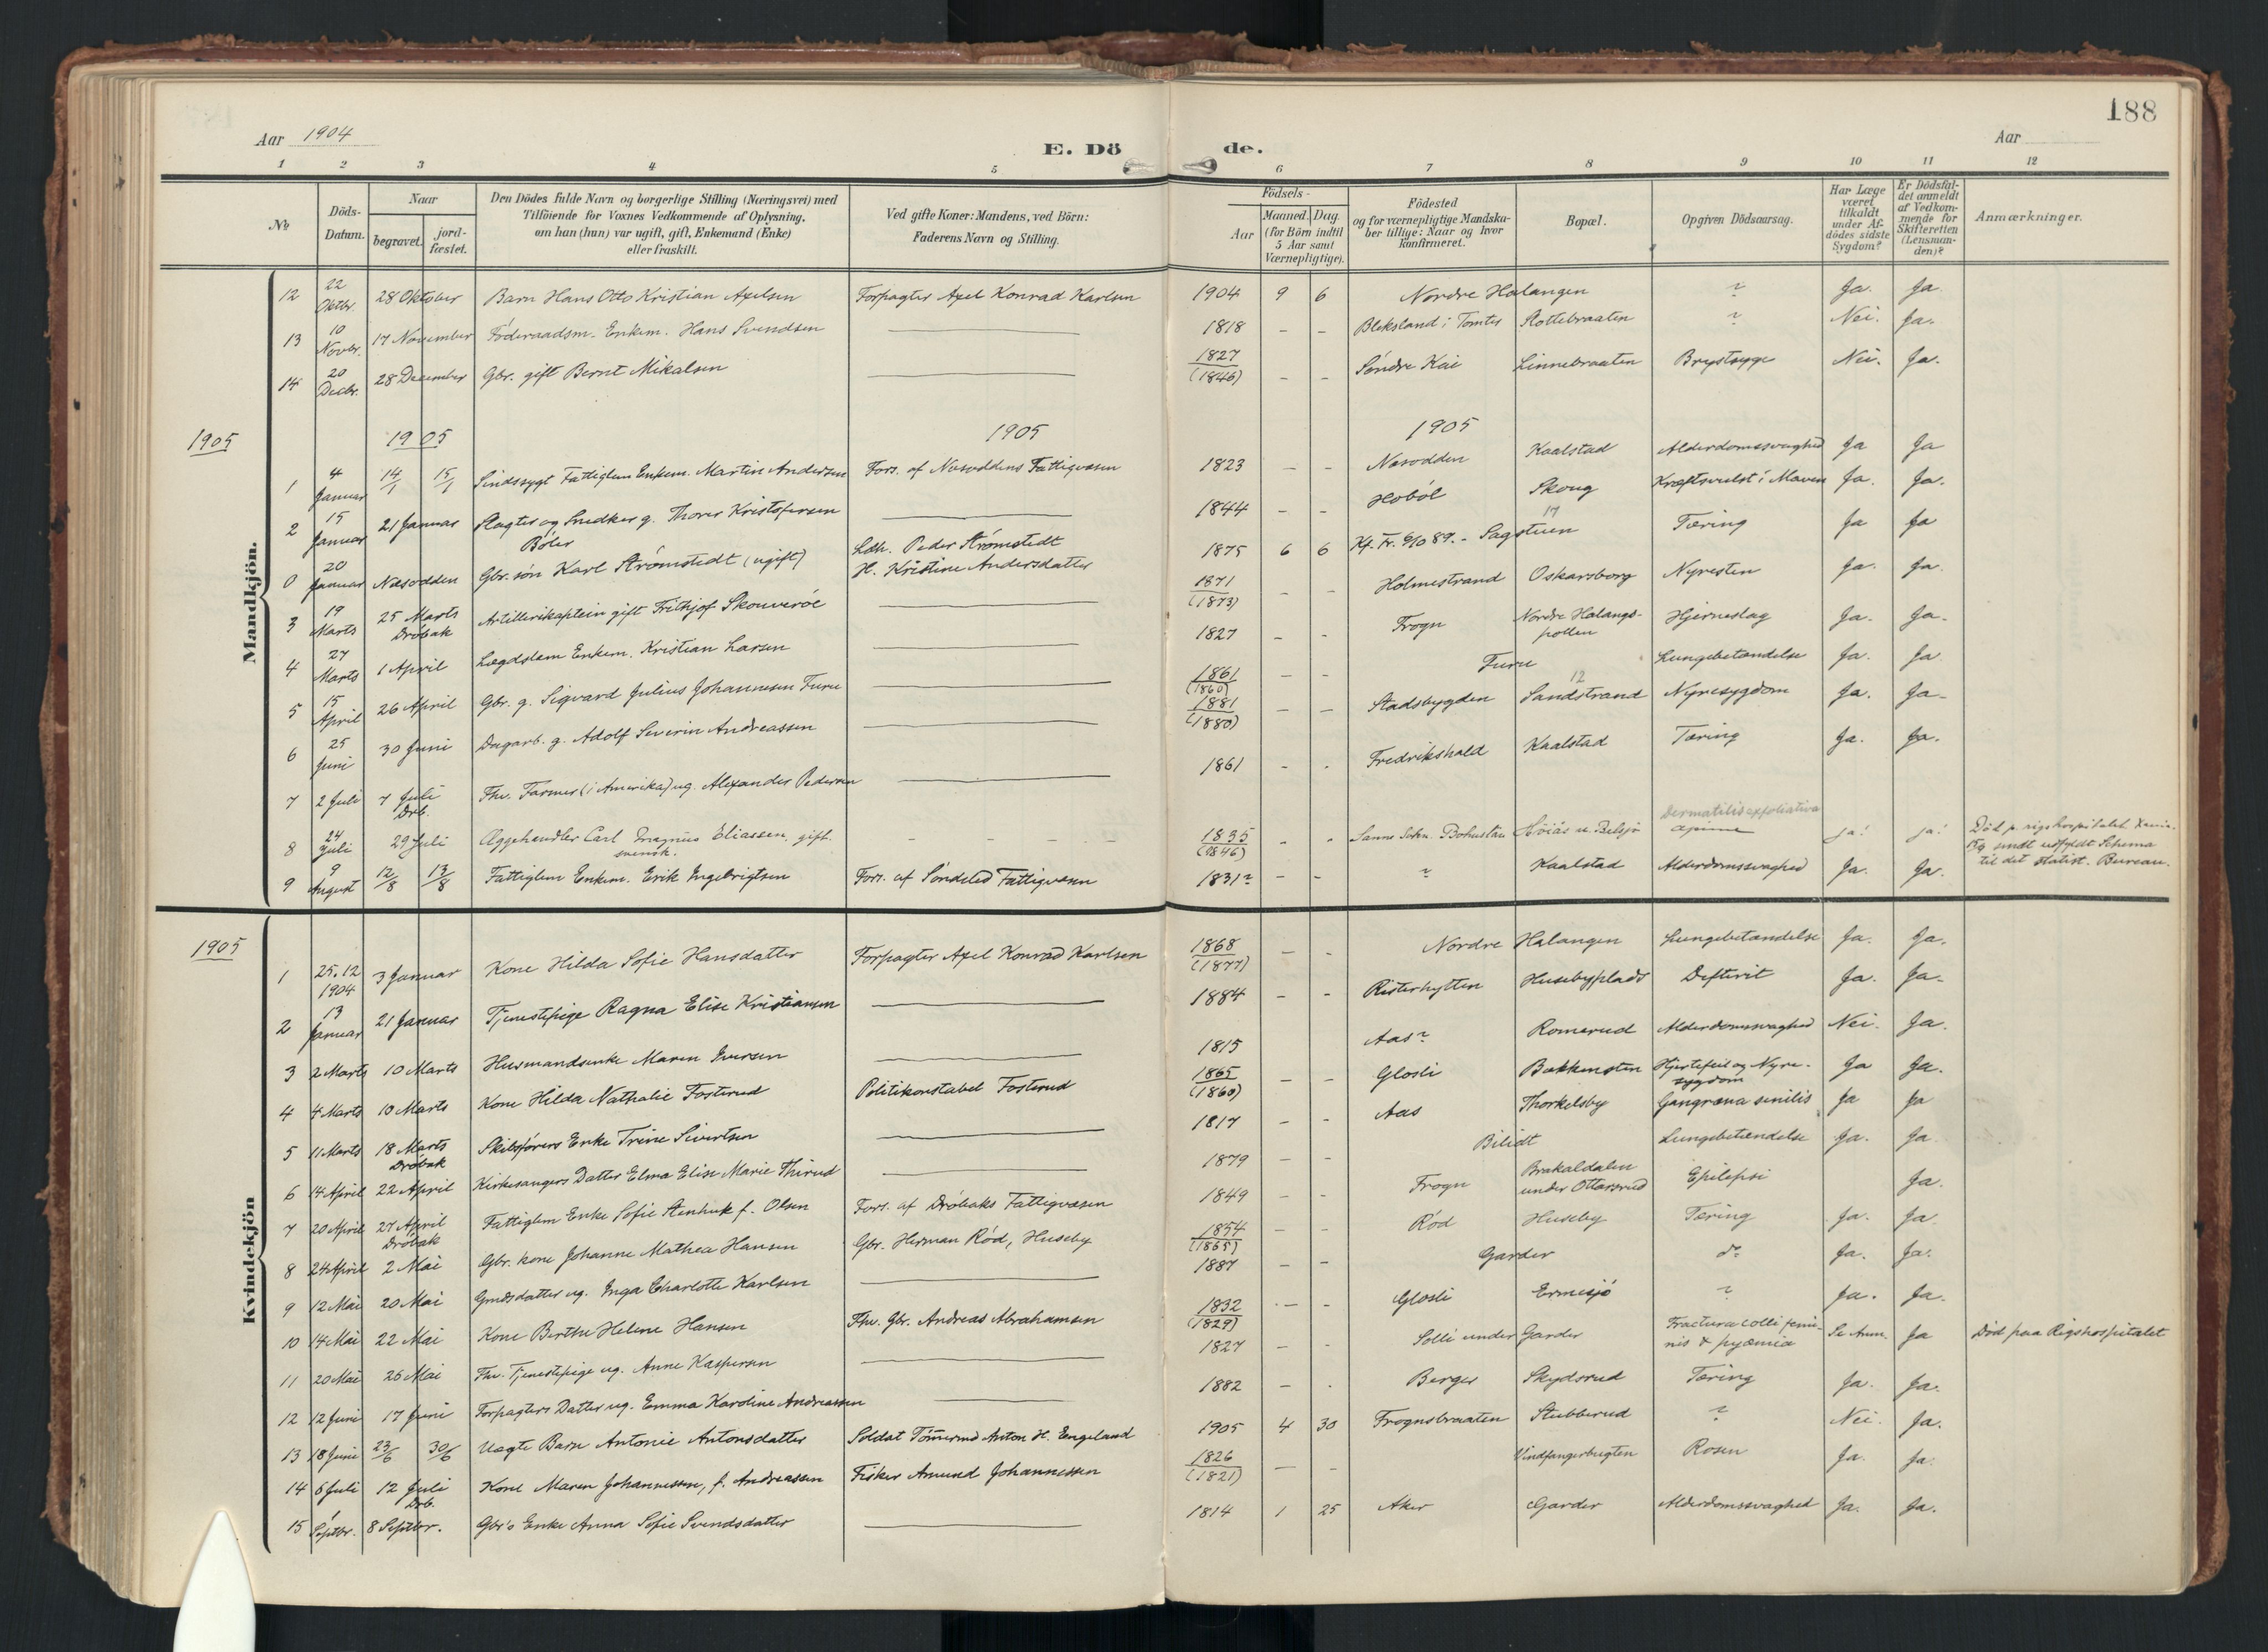 188
Aar 1904
E. Dö
de.
Aar
1 2 3 4 5 6 7 8 9 10 11 12
№
Döds-Datum.
Naar
begravet.
jord-fæstet.
Den Dödes fulde Navn og borgerlige Stilling (Næringsvei) med
Tilföiende for Voxnes Vedkommende af Oplysning,
om han (hun) var ugift, gift, Enkemand (Enke)
eller fraskilt.
Ved gifte Koner: Mandens, ved Börn:
Faderens Navn og Stilling.
Födsels-
Aar
Maaned. Dag.
(for Börn indtil
5 Aar samt
Værnepligtige).
Födested
og for værnepligtige Mandska-
ber tillige: Naar og hvor
konfirmeret.
Bopæl.
Opgiven Dödsaarsag.
Har Læge
været
tilkaldt
under Af-
dödes sidste
Sygdom?
Er Dödsfal-
det anmeldt
af Vedkom-
mende for
Skifteretten
(Lensman-
den)?
Anmærkninger.
Mandkjön.
12 22 Oktbr. 28 Oktober Barn Hans Otto Kristian Axelsen Forpagter Axel Konrad Karlsen 1904 9 6 Nordre Halangen ? Ja. Ja
13 10 Novbr. 17 November Föderaadsm. Enkem. Hans Svendsen 1818 - - Bleksland i Tomter Slottebraaten ? Nei. Ja.
14 20 Decbr. 28 December Gbr. gift Bernt Mikalsen 1827 (1846) - - Søndre Kai Linnebraaten Brystsyge Nei. Ja.
1905 1905 1905 1905
1 4 Januar 14/1 15/1 Sindssygt Fattiglem Enkem. Martin Andersen Fors. af Nesoddens Fattigvæsen 1823 - - Nesodden Kaalstad Alderdomssvaghed Ja Ja
2 15 Januar 21 Januar Slagter og Snedker g. Thorer Kristofersen 1844 - - Hoböl Skoug Kræftsvulst i Maven Ja. Ja.
Böler
0 20 Januar Nesodden Gbr. søn Karl Strömstedt (ugift) Ldh. Peder Strömstedt
H. Kristine Andersdatter 1875 6 6 Kf. Fr. 6/10 89. - Sagstuen 17 Tæring Ja Ja
3 19 Marts 25 Marts Dröbak Artillerikaptein gift Frithjof Skouveröe 1871 (1873) - - Holmestrand Oskarsborg Nyresten Ja. Ja.
4 27 Marts 1 April Lægdslem Enkem. Kristian Larsen 1827 - - Frogn Nordre Halangs-pollen Hjerneslag Ja. Ja.
5 15 April 26 April Gbr. g. Sigvard Julius Johannesen Furu 1861 (1860) - - Furu Lungebetændelse Ja. Ja
6 25 Juni 30 Juni Dagarb. g. Adolf Severin Andreassen 1881 (1880) - - Stadsbygden Sandstrand 12 Nyresygdom Ja. Ja-
7 2 Juli 7 Juli Drb. Fhv. Farmer (i Amerika) ug. Alexander Pedersen 1861 - - Fredrikshald Kaalstad Tæring Ja. Ja.
8 24 Juli 29 Juli Æggehandler Carl Magnus Eliassen, gift. svensk. 1835 (1846) - - Sanne Sokn. Bohuslän Dermatitis exfoliativa ja! ja! Död p. rigshospitalet
til det statist. Bureau.
9 9 August 12/8 13/8 Fattiglem Enkem. Erik Ingebrigtsen Fors. af Søndeled Fattigvæsen 1831? - - ? Kaalstad Alderdomssvaghed Ja. Ja.
Kvindekjön
1905
1 25.12 1904 3 Januar Kone Hilda Sofie Hansdatter Forpagter Axel Konrad Karlsen 1868 (1877) - - Nordre Halangen Lungebetændelse Ja. Ja.
2 13 Januar 21 Januar Tjenestepige Ragna Elise Kristiansen 1884 - - Risterhytten Husebyplads Difterit Ja. Ja-
3 2 Marts 10 Marts Husmandsenke Maren Iversen 1815 Aas? Romerud Alderdomssvaghed Nei. Ja.
4 4 Marts 10 Marts Kone Hilda Nathalie Fosterud Politikonstabel Fosterud 1865 (1860) - - Glosli Bakkensten Hjertefeil og Nyre-sygdom Ja Ja.
5 11 Marts 18 Marts Dröbak Skibsförers Enke Trine Sivertsen 1817 - - Aas Thorkelsby Gangræna senilis Ja Ja
6 14 April 22 April Kirkesangers Datter Elma Elise Marie Thirud 1879 - - Bilidt Lungebetændelse Ja. Ja
7 20 April 27 April Dröbak Fattiglem Enke Sofie Stenhuk f. Olsen Fors. af Dröbaks Fattigvæsen 1849 - - Frogn Brakaldalen under Ottarsrud Epilepsi Ja.
8 24 April 2 Mai Gbr. kone Johanne Mathea Hansen Gbr. Herman Röd, Huseby 1854 (1865) - - Röd Huseby Tæring Ja. Ja
9 12 Mai 20 Mai Grdr. datter ug. Inga Charlotte Karlsen 1887 - - Garder do Ja. Ja.
10 14 Mai 22 Mai Kone Berthe Helene Hansen Fhv. Gbr. Andreas Abrahamsen 1832 (1829) - - Glosli Ermesjö ? Ja. Ja.
11 20 Mai 26 Mai Fhv. Tjenestepige ug. Anne Kaspersen 1827 - - Solli under Garder Fractura colli femi-nis & pyæmia Se Anm. Ja Död paa Rigshospitalet
12 12 Juni 17 Juni Forpagters Datter ug. Emma Karoline Andreassen 1882 - - Berger Skydsrud Tæring Ja. Ja.
13 18 Juni 23/6 30/6 Uægte Barn Antonie Antonsdatter Soldat Tömmermd Anton H. Engeland 1905 4 30 Frognsbraaten Stubberud ? Nei. Ja.
14 6 Juli 12 Juli Drb. Kone Maren Johannessen, f. Andreassen Fisker Amund Johannessen 1826 (1821) - - Vindfangerbugten Rosen Ja. Ja.
15 1 Septbr. 8 Septbr. Gbr's Enke Anna Sofie Svendsdatter 1814 1 25 Aker Garder Alderdomssvaghed Ja. Ja.